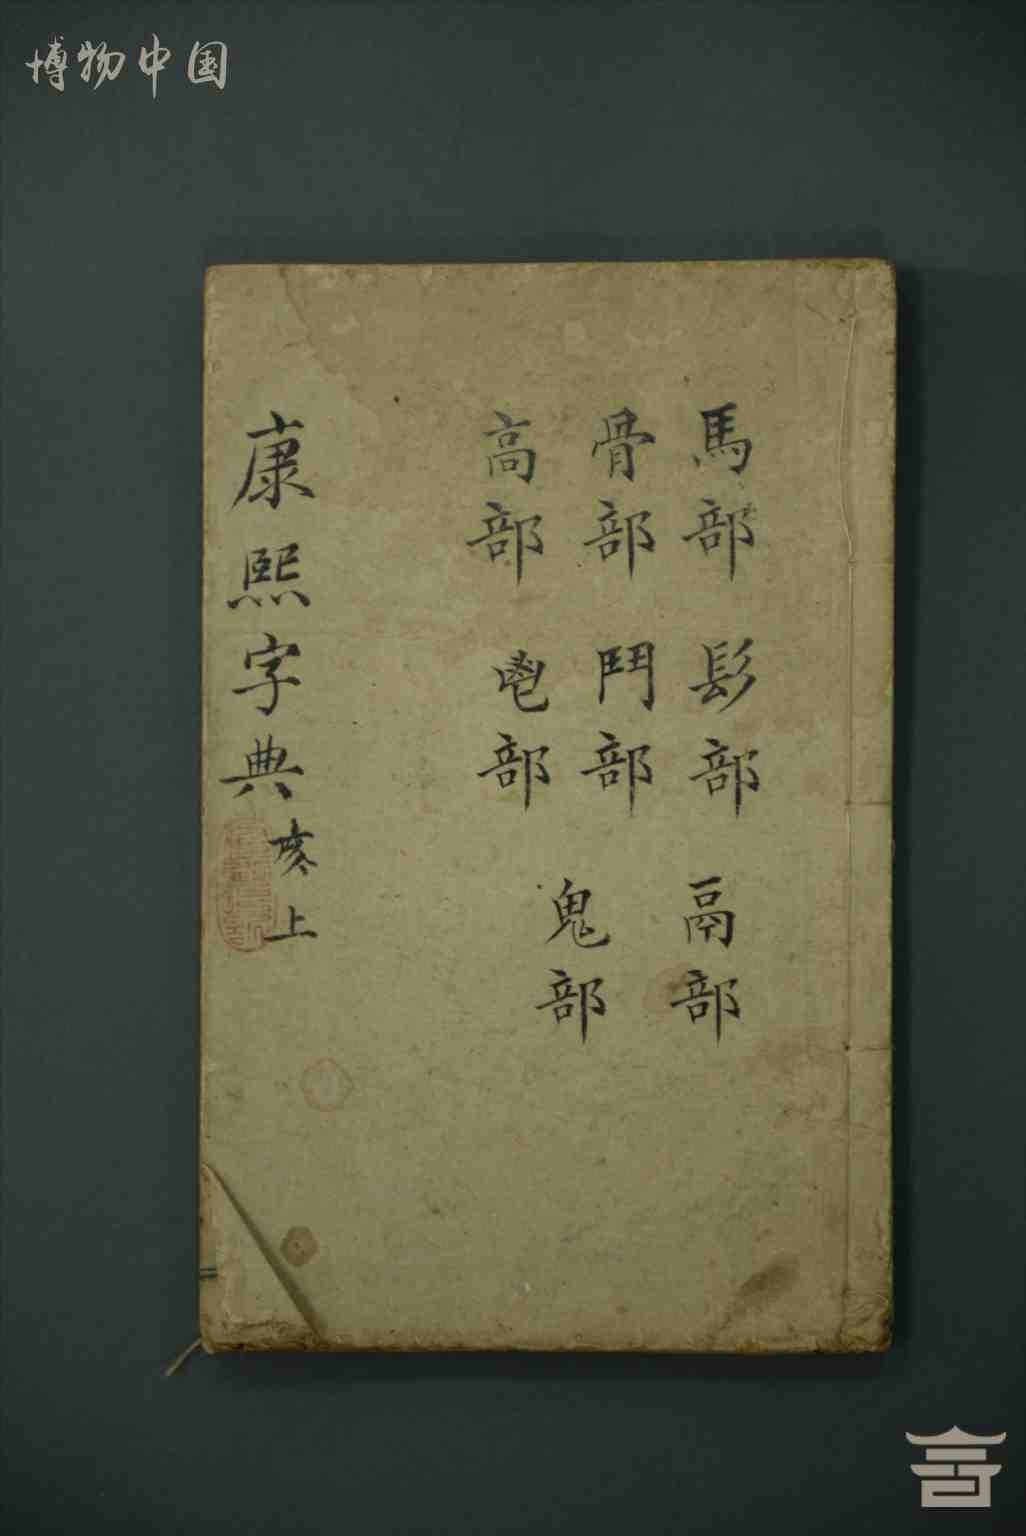 博物中国
馬部 髟部 鬲部
骨部 鬥部 鬼部
高部 鬯部
康熙字典 亥上